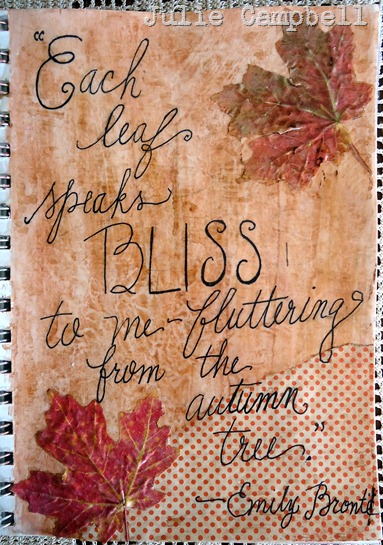 Julie Campbell
"Each
leaf
speaks
BLISS
to me-fluttering
from the
autumn
tree."
-Emily Brontë